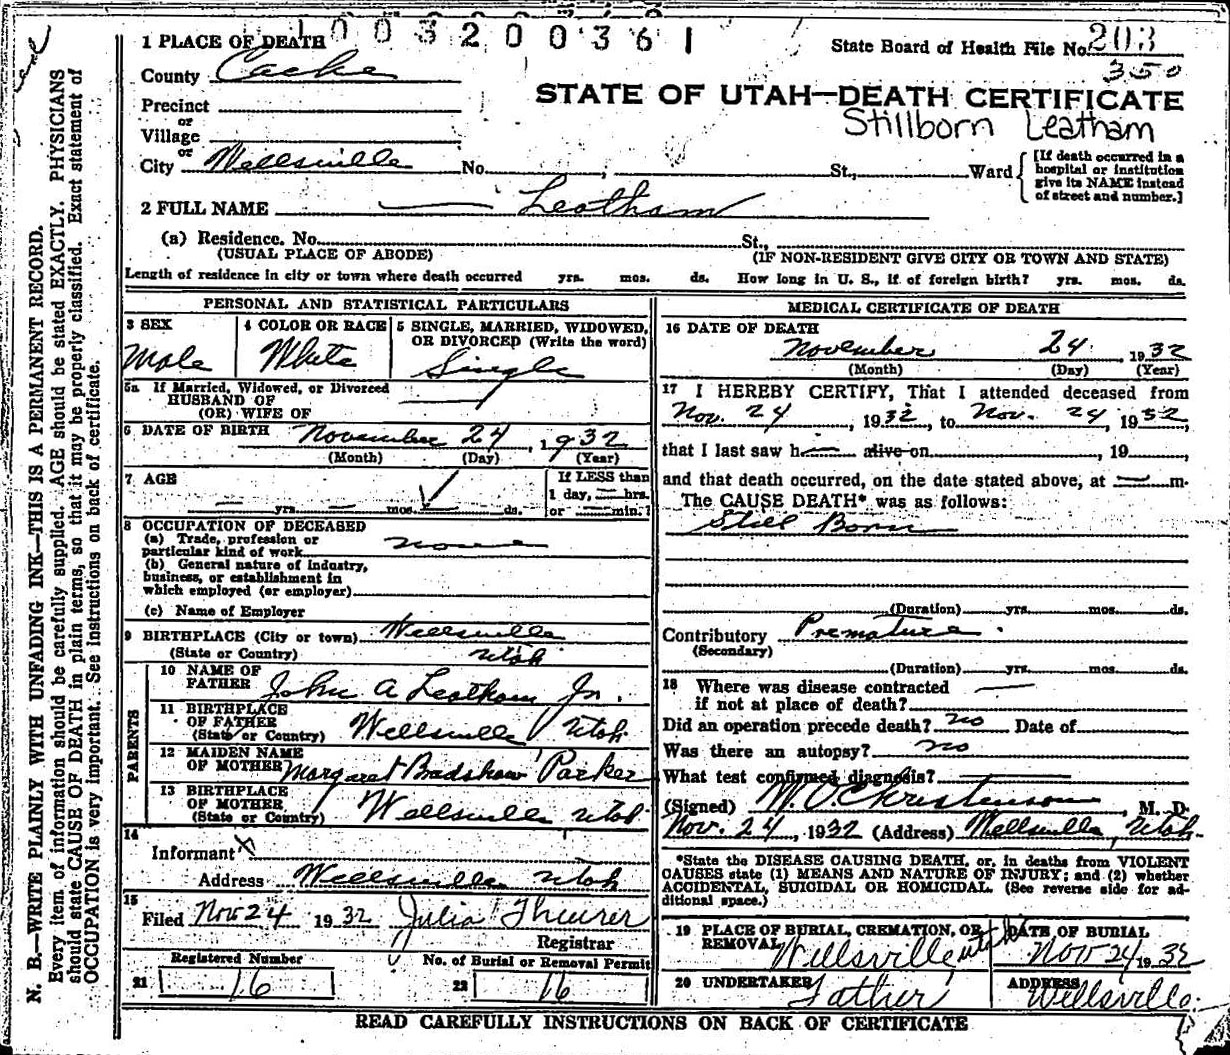 1003200361
1 PLACE OF DEATH
State Board of Health File No. 203
County Cache
350
STATE OF UTAH—DEATH CERTIFICATE
Precinct
or
Village
Stillborn Leatham
or
City Wellsville No. , St., Ward
[If death occurred in a
hospital or institution
give its NAME instead
of street and number.]
2 FULL NAME — Leatham
(a) Residence. No. St.,
(USUAL PLACE OF ABODE) (IF NON-RESIDENT GIVE CITY OR TOWN AND STATE)
Length of residence in city or town where death occurred yrs. mos. ds. How long in U. S., if of foreign birth? yrs. mos. ds.
PERSONAL AND STATISTICAL PARTICULARS
3 SEX
Male
4 COLOR OR RACE
White
5 SINGLE, MARRIED, WIDOWED,
OR DIVORCED (Write the word)
Single
5a If Married, Widowed, or Divorced
HUSBAND OF
(OR) WIFE OF
6 DATE OF BIRTH November 24, 1932
(Month) (Day) (Year)
7 AGE
— yrs. — mos. — ds.
If LESS than
1 day, — hrs.
or — min.?
8 OCCUPATION OF DECEASED
(a) Trade, profession or
particular kind of work none
(b) General nature of industry,
business, or establishment in
which employed (or employer)
(c) Name of Employer
9 BIRTHPLACE (City or town) Wellsville
(State or Country) Utah
PARENTS
10 NAME OF
FATHER John A Leatham Jr.
11 BIRTHPLACE
OF FATHER
(State or Country) Wellsville Utah
12 MAIDEN NAME
OF MOTHER Margaret Bradshaw Parker
13 BIRTHPLACE
OF MOTHER
(State or Country) Wellsville Utah
14
Informant X
Address Wellsville Utah
15
Filed Nov 24 1932 Julia Theurer
Registrar
Registered Number
21 16
No. of Burial or Removal Permit
22 16
MEDICAL CERTIFICATE OF DEATH
16 DATE OF DEATH
November 24, 1932
(Month) (Day) (Year)
17 I HEREBY CERTIFY, That I attended deceased from
Nov. 24, 1932, to Nov. 24, 1932,
that I last saw h— alive on , 19 ,
and that death occurred, on the date stated above, at — m.
The CAUSE DEATH* was as follows:
Still Born
(Duration) yrs. mos. ds.
Contributory Premature.
(Secondary)
(Duration) yrs. mos. ds.
18 Where was disease contracted
if not at place of death? —
Did an operation precede death? no Date of
Was there an autopsy? no
What test confirmed diagnosis? —
(Signed) W. O. Christenson, M. D.
Nov. 24, 1932 (Address) Wellsville, Utah.
*State the DISEASE CAUSING DEATH, or, in deaths from VIOLENT
CAUSES state (1) MEANS AND NATURE OF INJURY; and (2) whether
ACCIDENTAL, SUICIDAL OR HOMICIDAL. (See reverse side for ad-
ditional space.)
19 PLACE OF BURIAL, CREMATION, OR
REMOVAL Wellsville Utah
DATE OF BURIAL
Nov 24 1932
20 UNDERTAKER
Father
ADDRESS
Wellsville.
READ CAREFULLY INSTRUCTIONS ON BACK OF CERTIFICATE
N. B.—WRITE PLAINLY WITH UNFADING INK—THIS IS A PERMANENT RECORD.
Every item of information should be carefully supplied. AGE should be stated EXACTLY. PHYSICIANS
should state CAUSE OF DEATH in plain terms, so that it may be properly classified. Exact statement of
OCCUPATION is very important. See instructions on back of certificate.